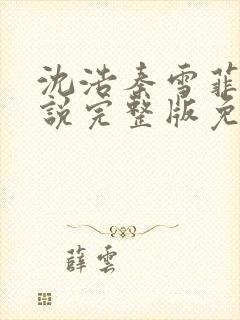 沈浩秦雪菲
説完整版免
薛雲